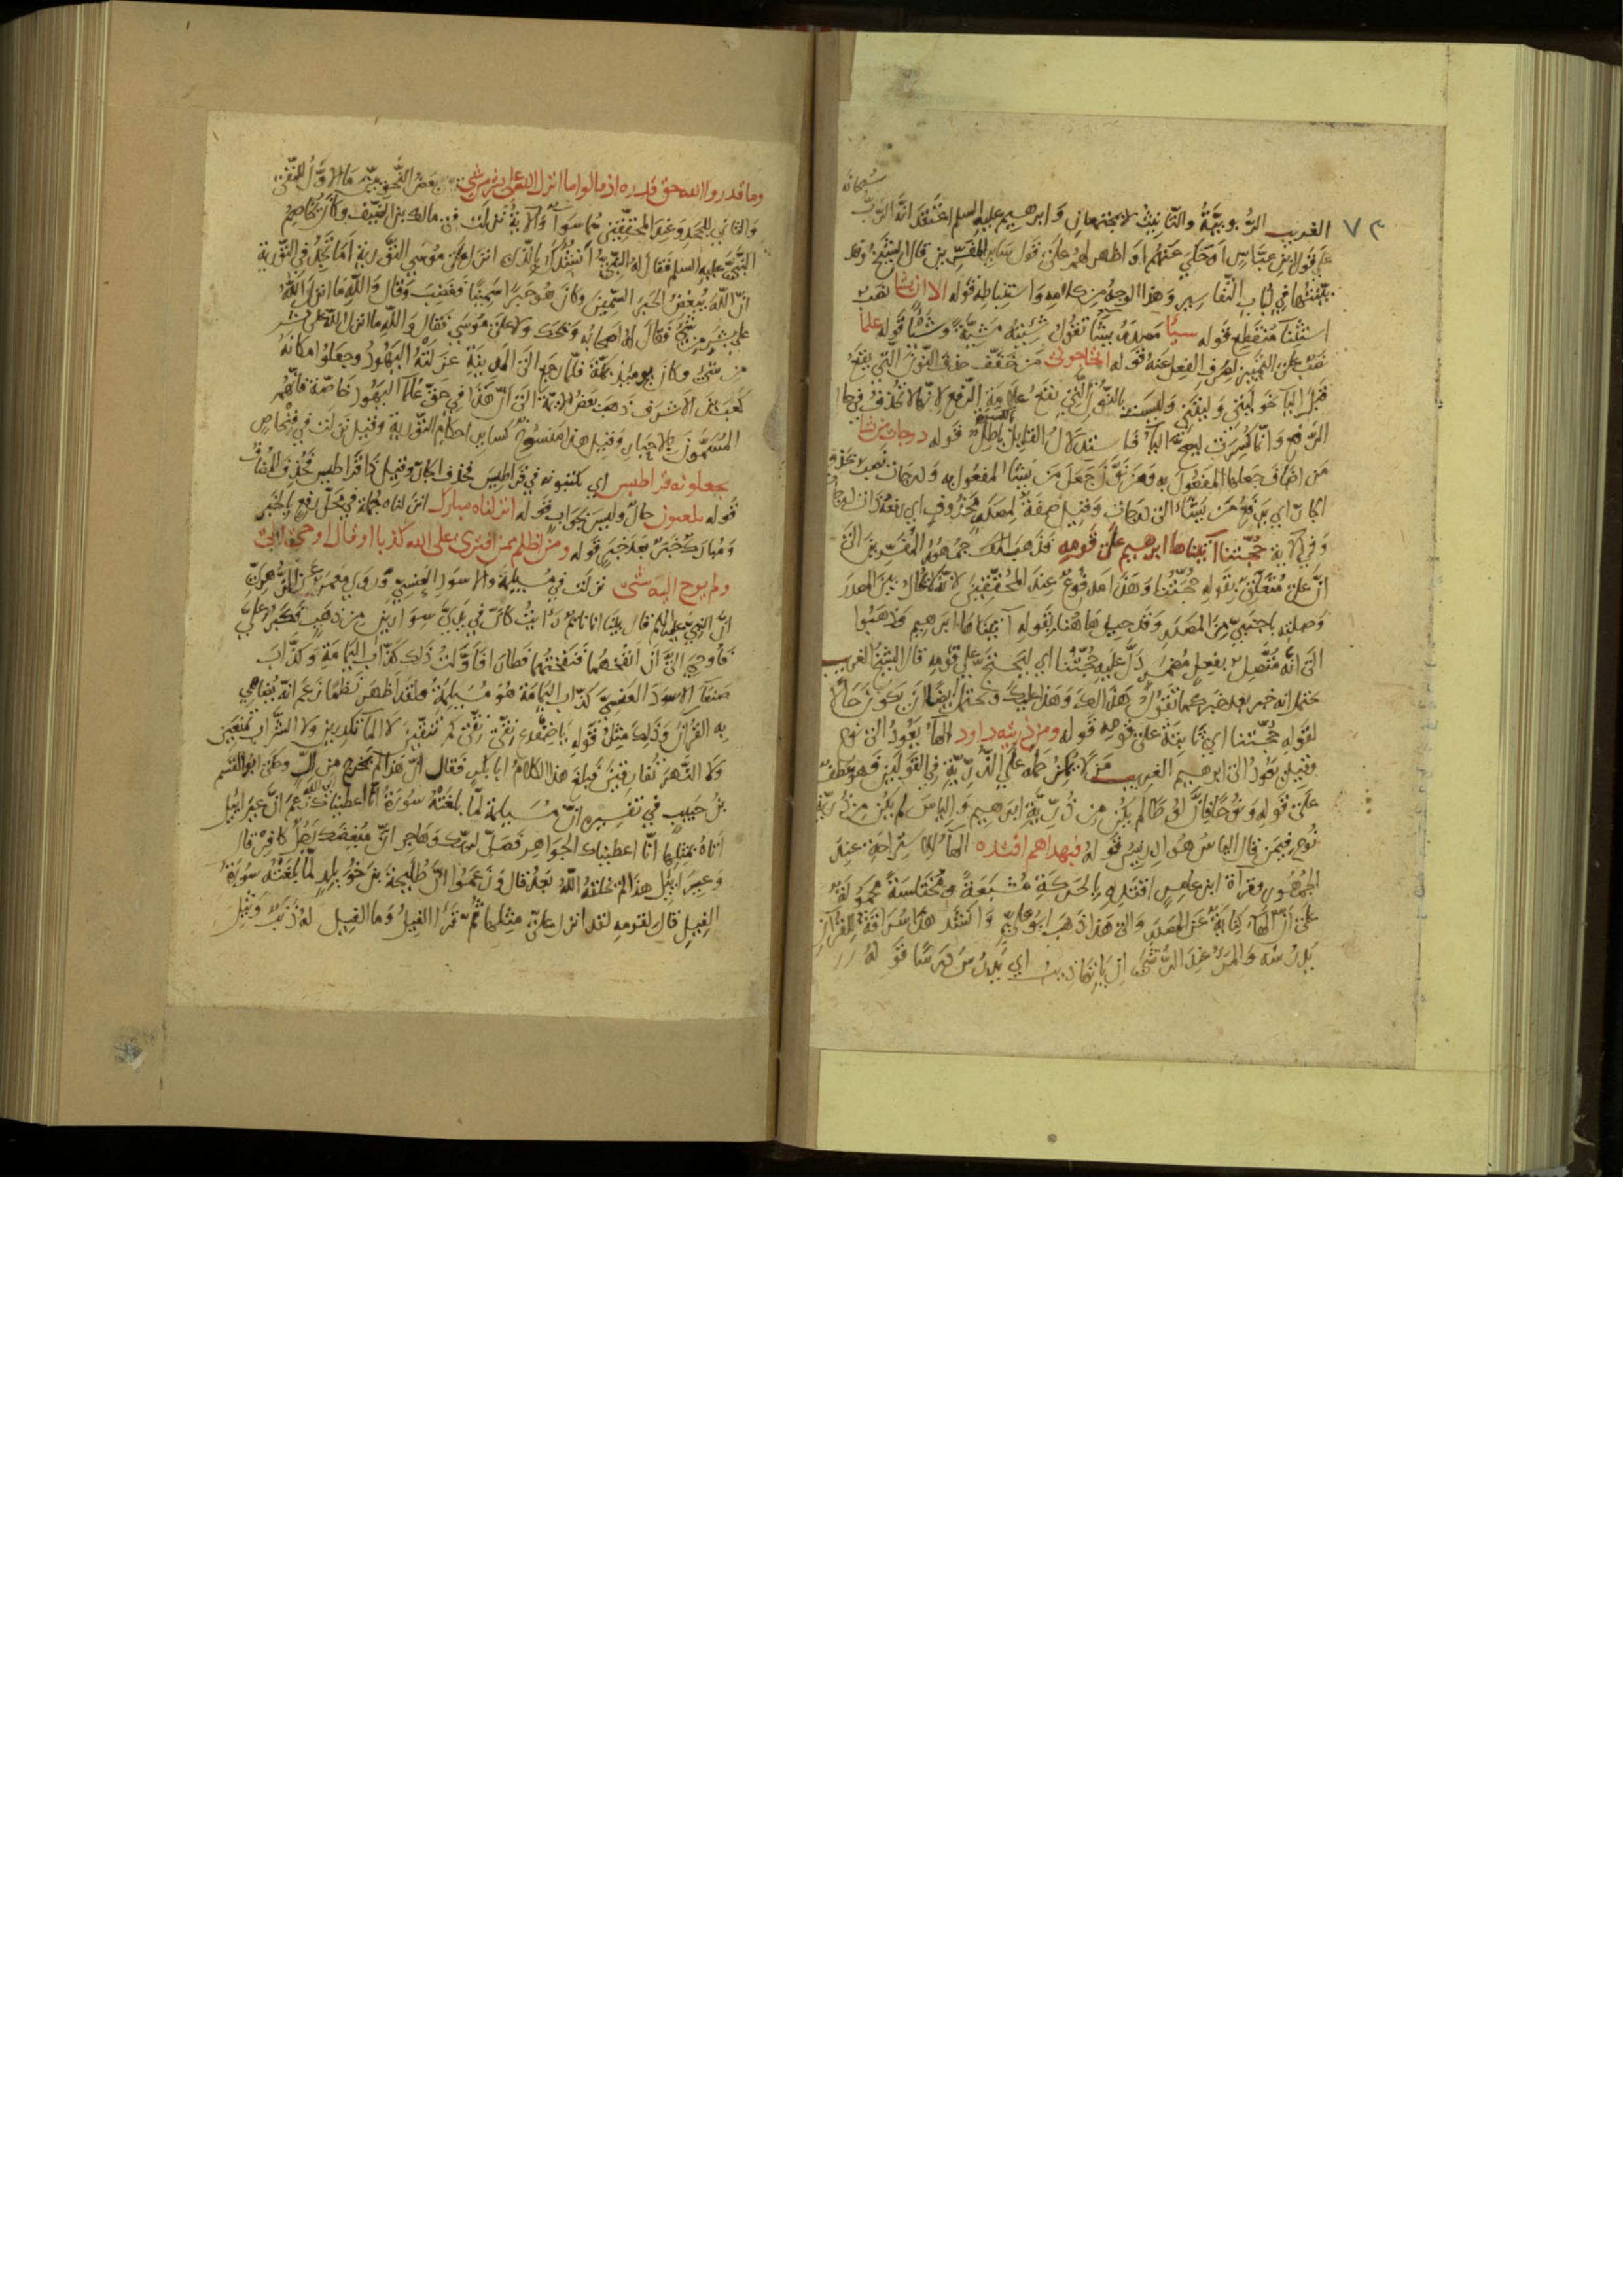 سبحانه
٧٣
الغريب الربوبيّةُ والتّانيثُ لا يجتمعان وَابرهيم عليه السلم اعتقد انّه الرّبّ
على قول بن عبّاس اَوحكي عنهُم اَو اظهر لهم على قول ساير المفسّرين قال الشيخ وقد
بيّنتُها في لباب التّفاسير وَهذا الوجهُ من كلامه وَاستنباطه قوله الا ان يشا نصب
استثناء مُنقطع قوله شيئا مَصدَرُ يشَأ تقُولُ شِئتهُ مَشيّةً وَشَيْئًا قوله علما
نصب على التّمييز لصرف الفعل عنهُ قوله اتحاجوني مَن خفّف حذف النّون الّتي تقع
قبل اليا نحو ليتني وَليتي وَليست بالنّون الّتي تقع علامة الرّفع لانّها لا تحذف في حال
الرّفع وَانّما كُسِرَت ليصحّ اليا فاستدلالُ القليل باطِلٌ قوله درجات من نشا
مَن اضاف جعلها المفعُول به وَمَن نوّن جَعَل مَن يشَا المفعُول به وَدرجات نصب بحذف
الجارّ اي يرفع مَن يشَاء الى درجات وَقيل صفة لمصدر محذُوف اي رفعة ذات درجات
وَفي الاية حجّتنا آتيناها ابرهيم على قومه قد ذهب جمهُور المفسّرين الى
انّ على مُتعلّق بقوله حُجّتُنا وَهَذا مَدفُوعٌ عند المحقّقين لانّه لا يُحالُ بين المصدر
وَصلته باجنبيّ مِنَ المصدر وَقد حيل هاهُنا بقوله آتيناها ابرهيم وَذهبُوا
الى انّه مُتّصلٌ بفعلٍ مُضمرٍ دلّ عليه حُجّتُنا اي ليَحتجّ على قومه قال الشيخ الغريب
يحتمل انه خبر بعد خبر كما تقُولُ هَذا لك وَهَذا عليك وَيحتمل ايضًا ان يكون حالًا
لقوله حُجّتنا اي ثابتة على قومه قوله ومن ذريته داود الهاءُ يعُودُ الى نوح
وقيل يعُود الى ابرهيم الغريب مَن لم يكن حمله على الذّرّيّة في القولين فهو عطف
على قوله وَنُوحًا فانّ لُوطًا لم يكن من ذُرّيّة ابرهيم وَالياسَ لم يكن من ذُرّيّة
نُوحٍ فيمن قال الياسُ هُوَ ادريسُ قوله فبهداهم اقتده الهاءُ للاستراحة عند
الجمهُور وقرآة ابن عامر اقتدِهِ بالحركة مُشبَعةً وَمُختلَسةً محمُولة
على انّ الهاء كناية عن المصدر وَالى هَذا ذهب ابوعليّ وَانشد هذا سُراقةُ للقرآن
يدرُسُه وَالمرءُ عند الرّشى ان يلقها ذيب اي يدرُسُ دَرسًا قوله
وما قدروا الله حق قدره اذ قالوا ما انزل الله على بشر من شي
وَالثاني للجحد وَعند المحقّقين هُما سَواء وَالاية نزلت في مالك بن الضّيف وكان يخاصم
النّبيّ عليه السلم فقال له النّبيّ اُنشُدُك بالّذي انزل على مُوسى التّورية اَمَا تجدُ في التّورية
انّ اللّه يبغضُ الحَبر السّمين وكان هُوَ حَبرًا سَمينًا فغضبَ وَقال وَاللّه ما انزل اللّه
على بشر من شيءٍ فقال له اصحابُه ويحك ولا على مُوسى فقال وَاللّه ما انزل اللّه على بشر
من شيءٍ وكان يومئذٍ بمكّة فلمّا رجع الى المدينة عزلتهُ اليهُودُ وجعلوا مكانهُ
كعبَ بن الاشرف ذهبَ بعضُ الايمّة الى انّ هَذا في حقّ علماء اليهُود خاصّة فانّهُم
المُسَمَّون بالاحبار وَقيل هذا منسُوخٌ كساير احكام التّورية وقيل نزلت في فنحاص
تجعلونه قراطيس اي يكتبُونه في قراطيس فحذف الجارّ وقيل ذا قراطيس فحُذف المضاف
قوله يلعبون حالٌ وليسَ بجَوَابٍ قوله انزلناه مبارك انزلناه جُملة في محلّ رفع بالخبر
وَمُبارك خبرٌ بعد خبرٍ قوله ومن اظلم ممن افترى على الله كذبا او قال اوحي الي
ولم يوح اليه شي نزلت في مُسيلمة وَالاسود العنسيّ وَروى مَعمر عن الزّهريّ
انّ النبيّ عليه السلم قال بينا انا نائمٌ رايتُ كانّ في يديّ سوارين من ذهب فكبُر عليّ
فأُوحِيَ اليّ ان انفُخهُما فنفختُهما فطارا فاوّلتُ ذلك كذّابَ اليَمامة وَكذّاب
صنعاء الاسودَ العنسيّ كذّاب اليمامة هُوَ مُسيلمةُ ولقد اظهر نظمًا زعم انّه يُضاهي
به القُرآن وَذلك مِثلُ قوله يا ضفدع نقّي نقّي كم تنقّين لا الماء تكدرين ولا الشّراب تمنعين
وَلا النّهر تُفارقين فبلغ هذا الكلامُ ابا بكرٍ فقال انّ هَذا لم يخرج من الّ وحكى ابو القسم
بنُ حبيب في تفسيره انّ مُسَيلمة لمّا بلغتهُ سُورة انّا اعطيناك زعم انّ عبرائيل
اتاهُ بمثلها انّا اعطيناك الجواهر فصلّ لربّك وهاجر انّ مُبغضك رجُلٌ كافر قال
وَعبرائيل هذا لم يخلقهُ اللّه بَعدُ قال وَزعمُوا انّ طُليحة بن خُويلدٍ لمّا بلغتهُ سُورة
الفِيل قال لقومه لقد انزل عليّ مثلُها ثم قرأ الفيلُ وَما الفيل له ذنبٌ وَثيلٌ